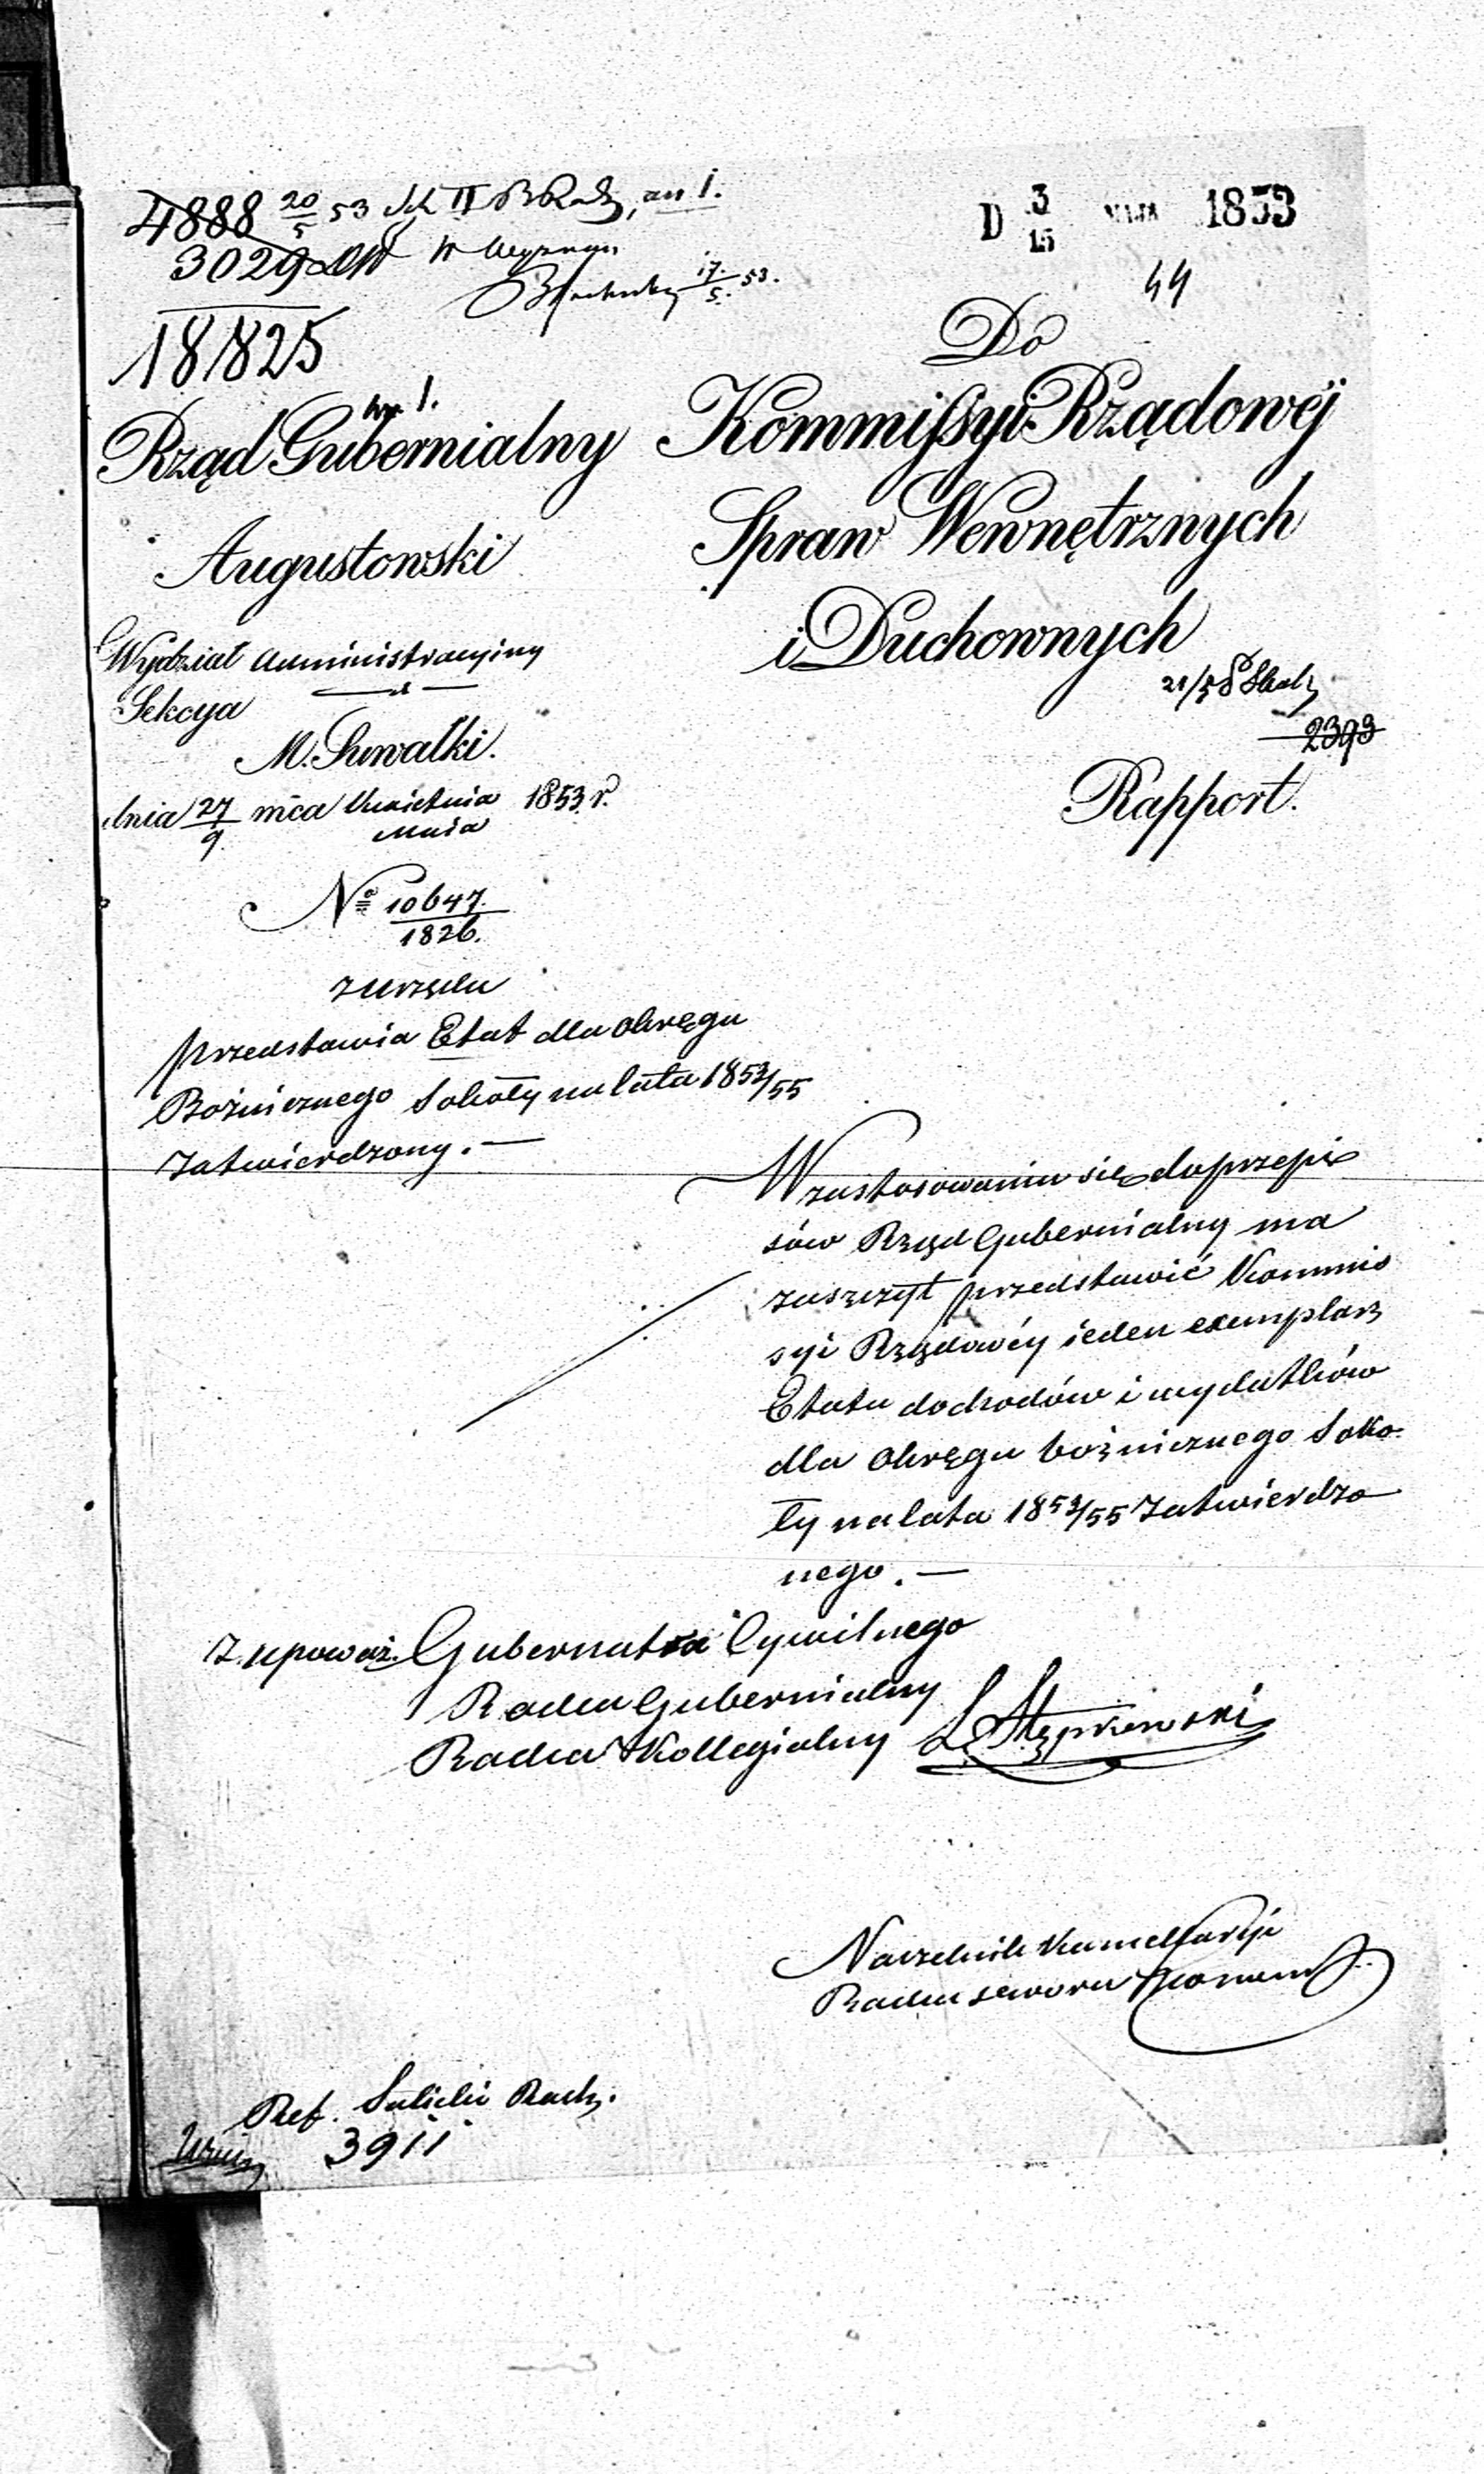 4888 20/5 53 II
3029
17/5. 53.
18825
D 3/15 MAJA 1853
44
wp. 1.
Rząd Gubernialny
Augustowski
Wydział Administracyjny
Sekcya
M. Suwałki.
dnia 27/9 mca Kwietnia/Maia 1853 r.
No 10647./1826.
z Urzędu
przedstawia Etat dla Okręgu
Bożnicznego Sokoły na lata 1853/55
zatwierdzony. —
Do
Kommissyi Rządowéj
Spraw Wewnętrznych
i Duchownych
2393
Rapport.
W zastosowaniu się do przepi
sów Rząd Gubernialny ma
zaszczyt przedstawić Kommis
syi Rządowéy ieden exemplarz
Etatu dochodów i wydatków
dla Okręgu bożnicznego Soko
ły na lata 1853/55 zatwierdzo
nego. —
Z upoważ. Gubernatora Cywilnego
Radca Gubernialny
Radca Kollegialny
Naczelnik Kancellaryi
Radca Dworu
Ref. Salicki
3911